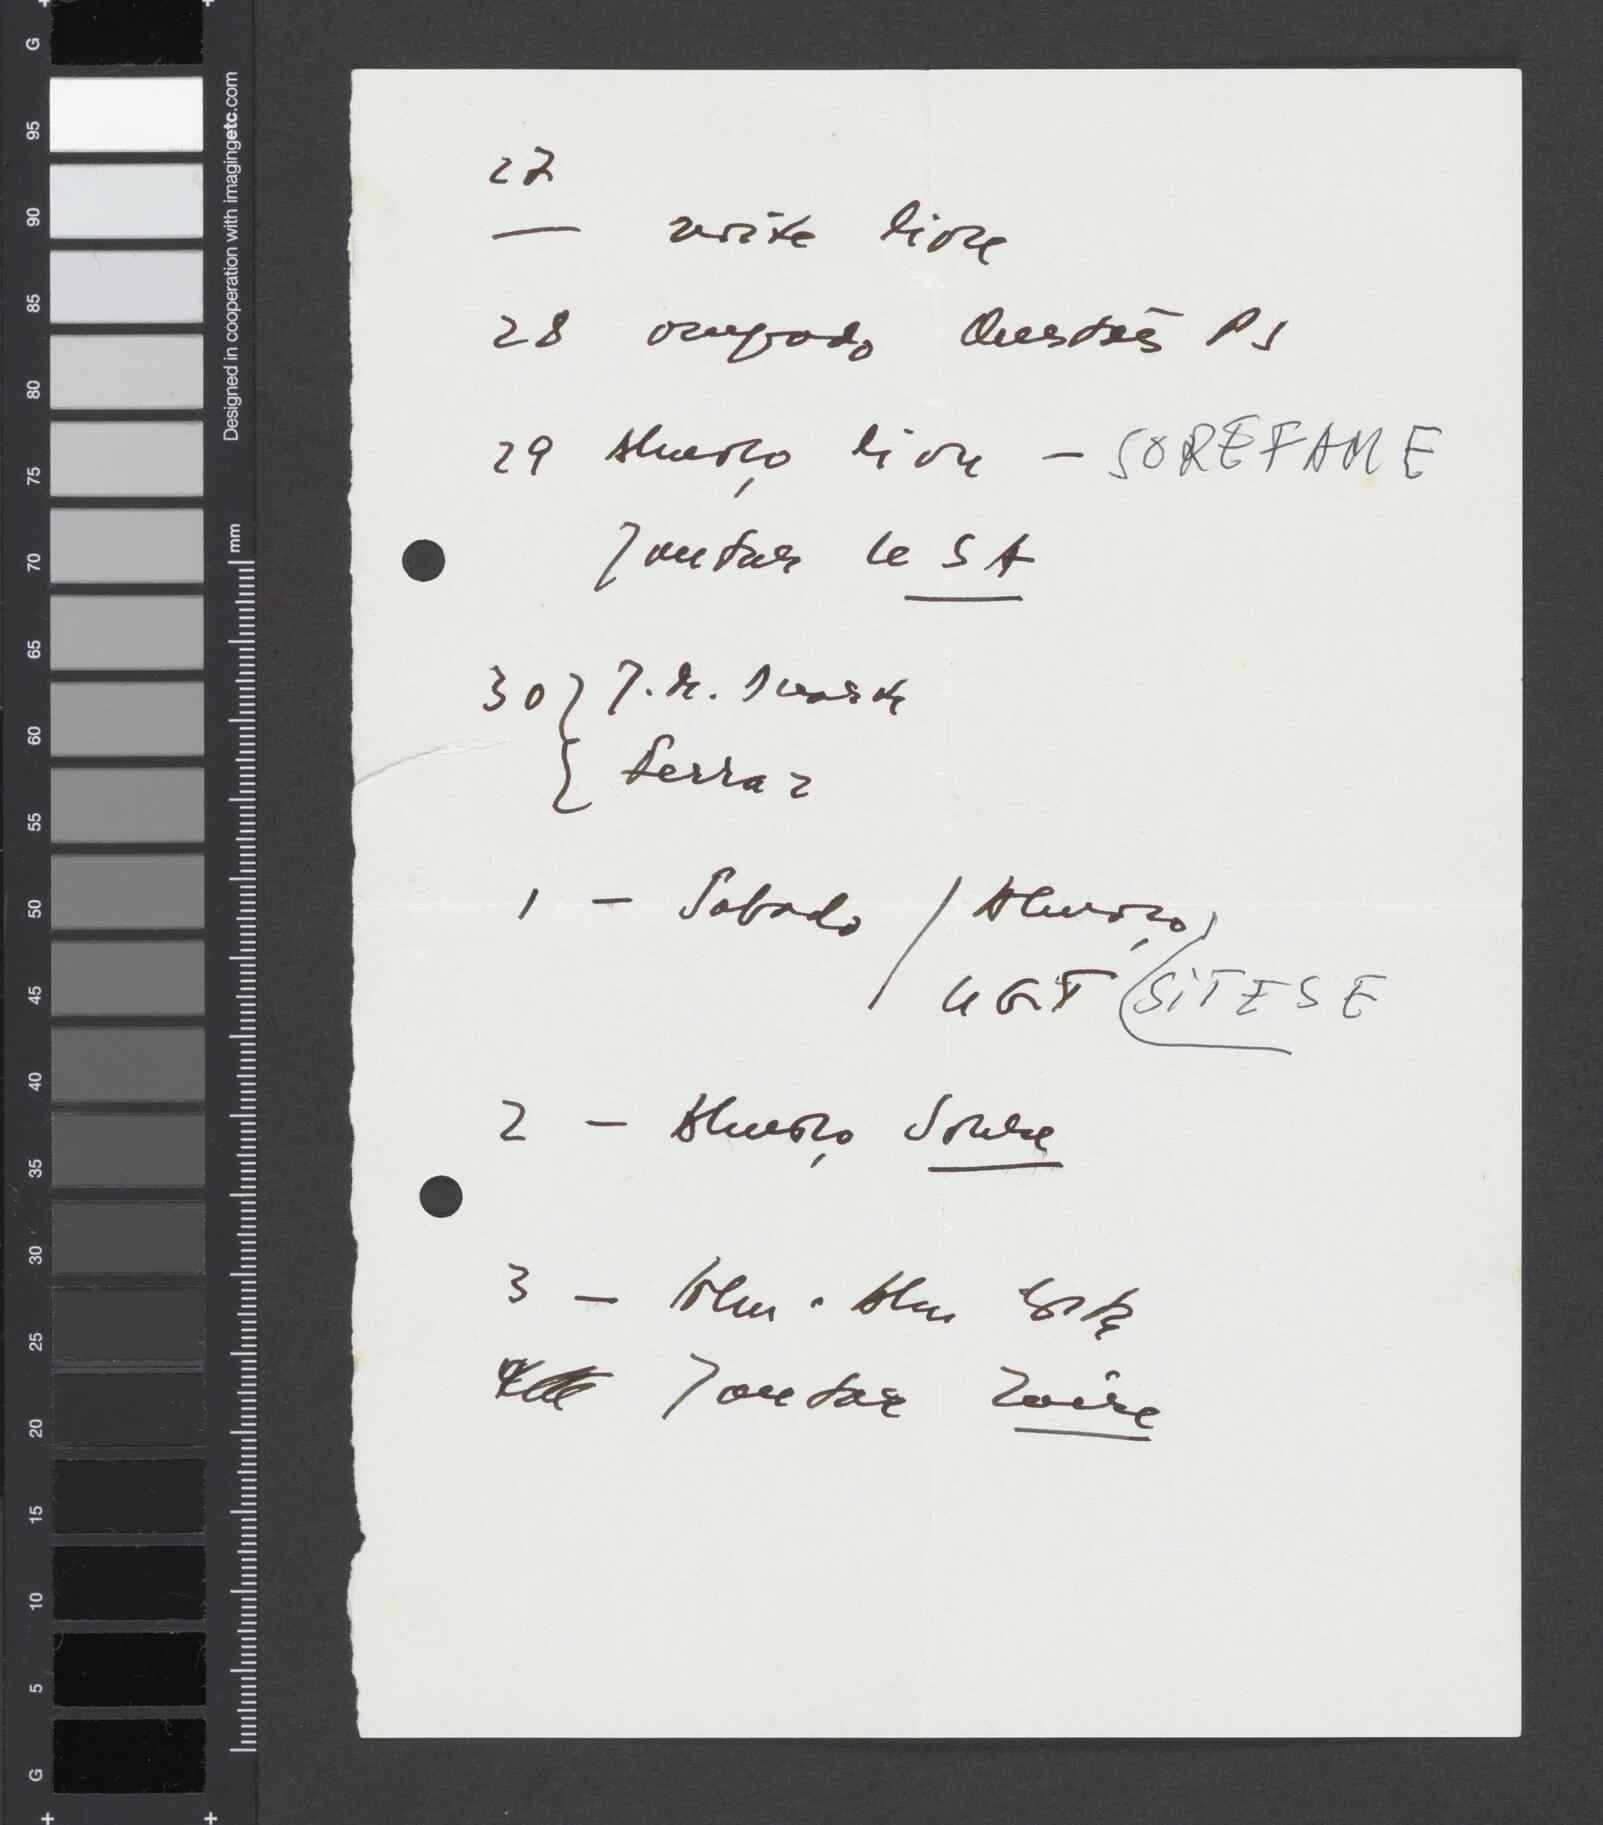 27
— noite livre
28 ocupado Questões PS
29 Almoço livre — SOREFAME
Jantar le SA
30 } J. M. Duarte
{ Ferraz
1 — Sabado / Almoço
UGT (SITESE
2 — Almoço Soure
3 — Alm. Alm
Jantar Zaire
G
95
90
85
80
75
70
65
60
55
50
45
40
35
30
25
20
15
10
5
G
Designed in cooperation with imagingetc.com
mm